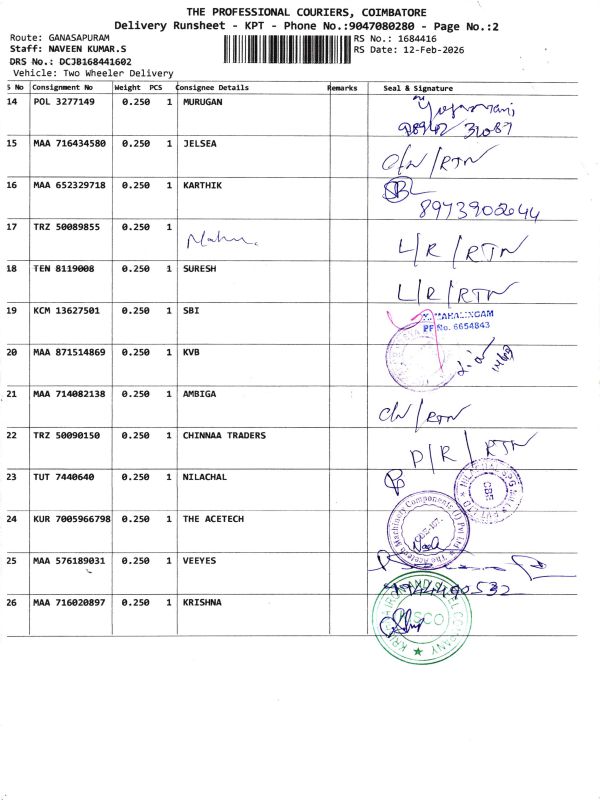 THE PROFESSIONAL COURIERS, COIMBATORE
Delivery Runsheet - KPT - Phone No.:9047080280 - Page No.:2
Route: GANASAPURAM
Staff: NAVEEN KUMAR.S
DRS No.: DCJB168441602
Vehicle: Two Wheeler Delivery
RS No.: 1684416
RS Date: 12-Feb-2026
S No Consignment No Weight PCS Consignee Details Remarks Seal & Signature
14 POL 3277149 0.250 1 MURUGAN
15 MAA 716434580 0.250 1 JELSEA O/N/RTN
16 MAA 652329718 0.250 1 KARTHIK
17 TRZ 50089855 0.250 1 L/R/RTN
18 TEN 8119008 0.250 1 SURESH L/R/RTN
19 KCM 13627501 0.250 1 SBI MAHALINGAM
PF No. 6654843
20 MAA 871514869 0.250 1 KVB
21 MAA 714082138 0.250 1 AMBIGA /RTN
22 TRZ 50090150 0.250 1 CHINNAA TRADERS D/R/RTN
23 TUT 7440640 0.250 1 NILACHAL CBE
24 KUR 7005966798 0.250 1 THE ACETECH The Acetech Machinery Components (I) Pvt Ltd
25 MAA 576189031 0.250 1 VEEYES
26 MAA 716020897 0.250 1 KRISHNA